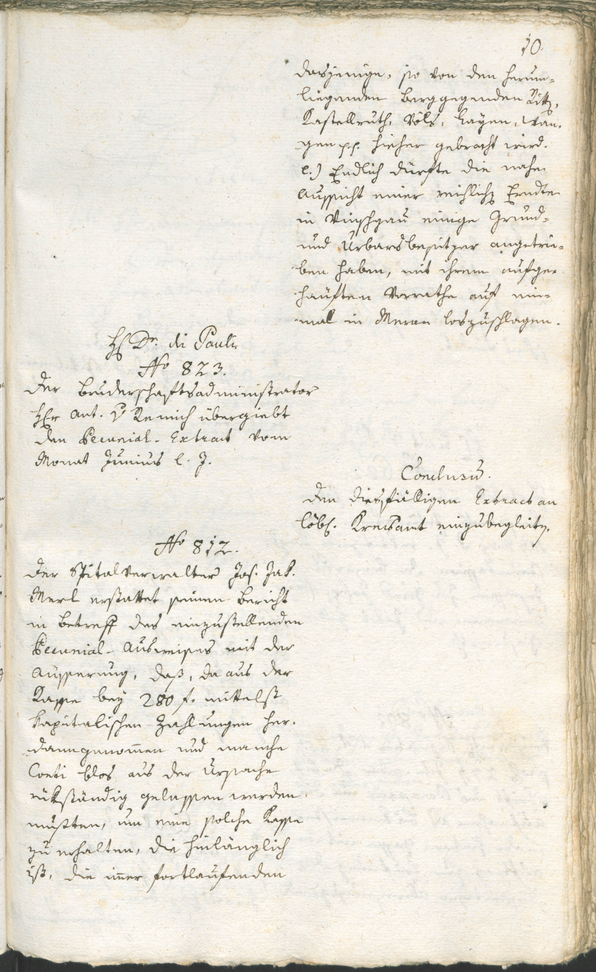 10
dasjenige, so von den herum-
liegenden Berggegenden
Kastellruth, Völs, Layen, Wan-
gen pp. hieher gebracht wird.
e.) Endlich dürfte die nahe
Aussicht einer reichlichen Erndte
in Vinschgau einige Grund-
und Urbarsbesitzer angetrie-
ben haben, mit ihrem aufge-
häuften Vorrathe auf ein-
mal in Meran loszuschlagen.
Hr Dr. di Pauli
No 823.
Der Bruderschaftsadministrator
Herr Ant. v Remich übergiebt
den Pecunial-Extract vom
Monat Junius l. J.
Conclusum.
Den diesfälligen Extract an
löbl. Kreisamt einzubegleiten.
No 812.
Der Spitalverwalter Jos. Jak.
Merl erstattet seinen Bericht
in Betreff des einzustellenden
Pecunial-Ausweises mit der
Äusserung, daß, da aus der
Kasse bey 280 f. mittelst
Kapitalischen Zahlungen her-
danngenommen und manche
Conti blos aus der Ursache
rükständig gelassen werden
mußten, um eine solche Kasse
zu erhalten, die hinlänglich
ist, die immer fortlaufenden